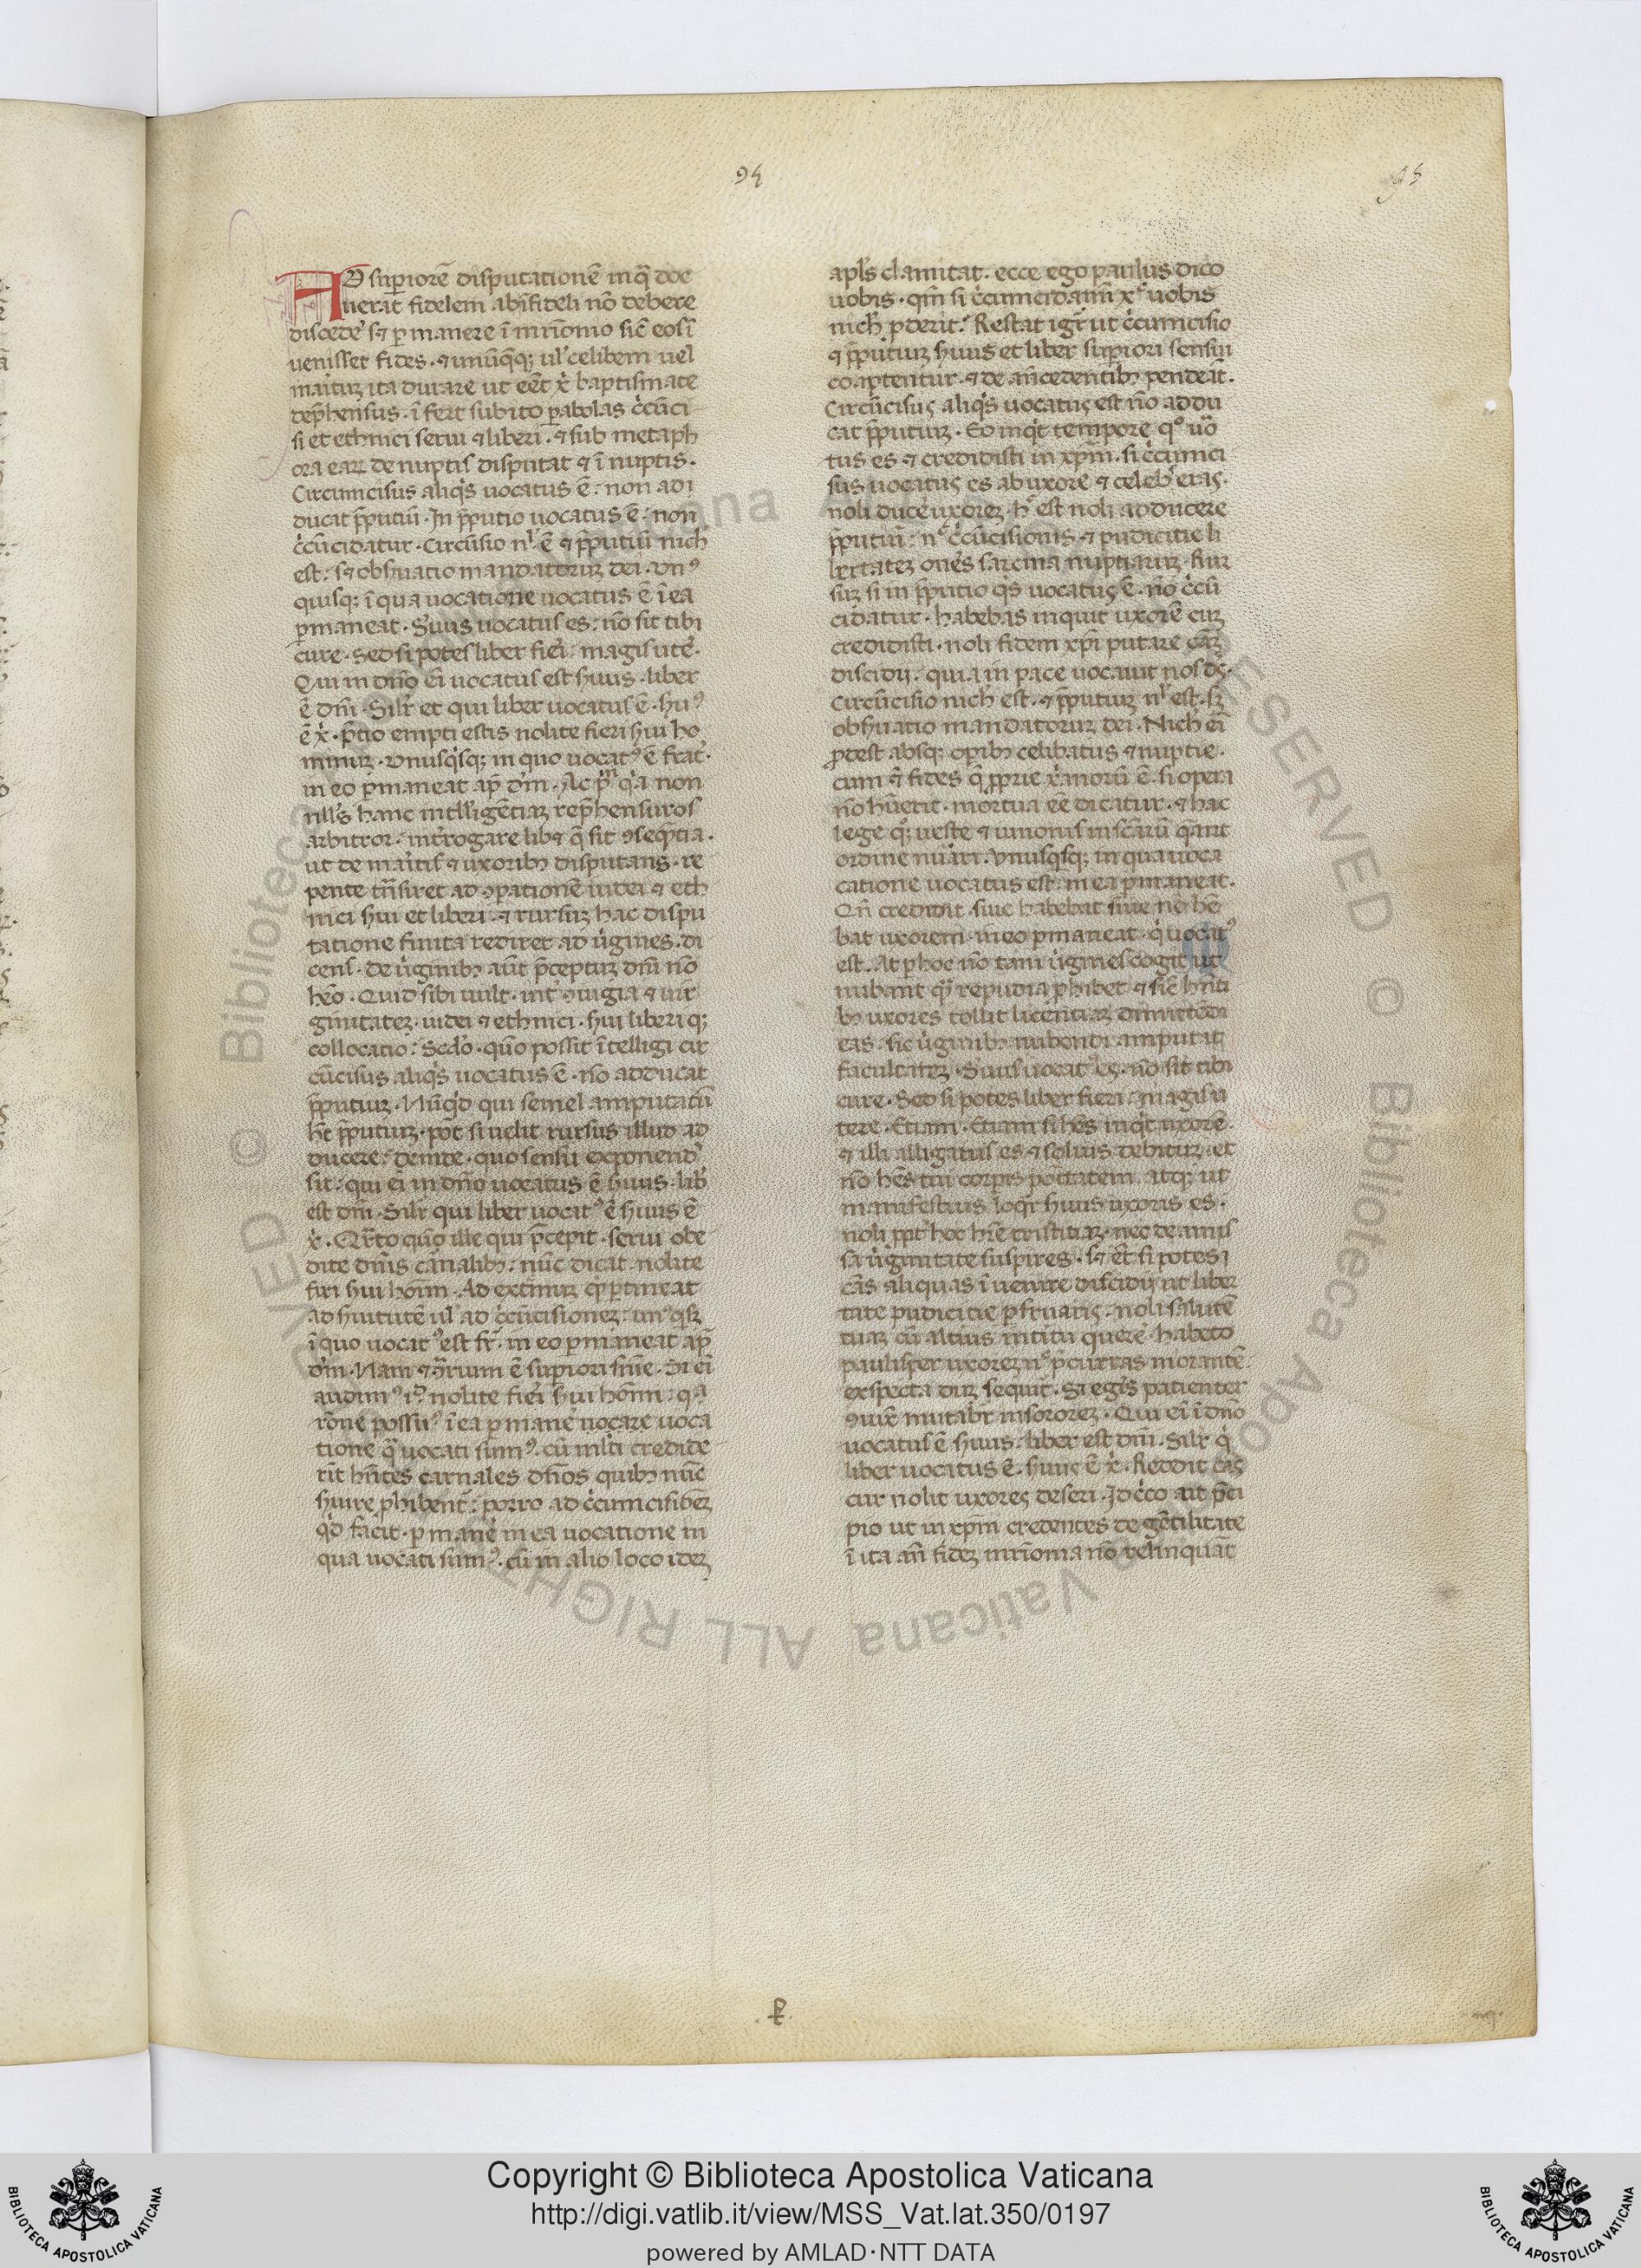 95
95
AD superiorē disputationē inq̄ doc
uerat fidelem abīfideli nō debere
discede' sꝫ ꝑmanere ī mr̄imonio sic̄ eos ī
uenisset fides. ⁊ unūqꝫqꝫ ul' celibem uel
maritū ita durare ut eēt xi baptismate
dep̄hensus. īfert subito ꝑabolas ċcūci
si et ethnici serui ⁊ liberi. ⁊ sub metaph
ora eaꝝ de nuptis disputat ⁊ ī nuptis.
Circumcisus aliqis uocatus ē: non ad
ducat p̄putiū. In p̄putio uocatus ē: non
ċcūcidatur. Circūsio nl' ē ⁊ p̄putiū nich
est. sꝫ obseruatio mandatoruꝫ dei. Vn⁹
quisqꝫ ī qua uocatione uocatus ē ī ea
ꝑmaneat. Suus uocatus es: nō sit tibi
cure. Sed si potes liber fieri: magis ute'.
Qui in dn̄o ei uocatus est suus. liber
ē dn̄i. Silr et qui liber uocatus ē. su⁹
ē x̄. p̄tio empti estis nolite fieri sui ho
minuꝫ. Vnusqisqꝫ in quo uocat⁹ ē frat'.
in eo ꝑmaneat ap̄ dm̄. Ac pͥ qia non
nll's hanc intlligētiaꝫ rep̄hensuros
arbitror. int̄rogare libꝫ q̄ sit ꝯseq̄tia.
ut de maritis ⁊ uxoribꝫ disputans. re
pente tn̄siret ad ꝯparationē iudei ⁊ eth
nici sui et liberi. ⁊ rursuꝫ hac dispu
tatione finita rediret ad uirgines. di
cens. de uirginibꝫ aūt p̄ceptuꝫ dn̄i nō
heo. Quid sibi uult. int' ꝯiugia ⁊ uir
ginitateꝫ. iudei ⁊ ethnici. sui liberiqꝫ
collocatio: Sed'o. quō possit ītelligi cir
cūcisus aliqis uocatus ē. nō adducat
p̄putiuꝫ. Nūqid qui semel amputatū
ht̄ p̄putiuꝫ. pot̄ si uelit rursus illud ad
ducere: deinde. quo sensu exponend⁹
sit: qui ei in dn̄o uocatus ē suus. lib'
est dn̄i. Silr qui liber uocat⁹ ē suus ē
x̄. Qrto quō ille qui p̄cepit. serui obe
dite dn̄is carnalibꝫ: nūc dicat nolite
fieri sui hoīm. Ad extmuꝫ qid ꝑtineat
ad suitutē ul' ad ċcūcisioneꝫ: un⁹qisqꝫ
ī quo uocat⁹ est fr̄. in eo ꝑmaneat ap̄
dm̄. Nam ⁊ ꝯrium ē superiori snīe. Si ei
audim⁹ nolite fieri sui hoīm: qa
rōne possum⁹ ī ea ꝑmane' uocare uoca
tione qa uocati sum⁹. cū mlti credide
rīt hn̄tes carnales dn̄os quibꝫ nūc
suire ꝓhibent: porro ad ċcumcisibeꝫ
qid facit. ꝑmane' in ea uocatione in
qua uocati sum⁹. cū in alio loco ideꝫ
apl's clamitat. ecce ego paulus dico
uobis. qm̄ si ċcumcidamī xc uobis
nich' ꝓderit. Restat igr̄ ut ċcumcisio
⁊ p̄putiuꝫ suus et liber supiori sensui
coaptentur. ⁊ de an̄cedentibꝫ pendeāt.
Circūcisus aliqis uocatus est nō addu
cat p̄putiuꝫ. Eo inqit tempore qo uo
tus es ⁊ credidisti in xp̄m. si ċcumci
sus uocatus es ab uxore ⁊ celeb' eras.
noli duce' uxoreꝫ. hͦ est noli adducere
p̄putiū: nͨ ċcūcisionis ⁊ pudicitie li
bertateꝫ ones sarcina nuptiaruꝫ. Rur
suꝫ si in p̄putio qis uocatus ē. nō ċcū
cidatur. habebas inquit uxorē cuꝫ
credidisti. noli fidem xp̄i putare caꝫ
discidij. quia in pace uocauit nos ds̄.
Circūcisio nich' est. ⁊ p̄putiuꝫ nl' est. sꝫ
obseruatio mandatoruꝫ dei. Nich' ei
ꝓdest absqꝫ opibꝫ celibatus ⁊ nuptie.
cum ⁊ fides q̄ ꝓprie xianorū ē. si opera
nō huerit. mortua eē dicatur. ⁊ hac
lege qꝫ ueste ⁊ unionis in scārū qeant
ordine nuari. Vnusqisqꝫ in qua uoca
catione uocatus est. in ea ꝑmaneat.
Qn̄ credidit siue habebat siue nō he
bat uxorem. in eo ꝑmaneat. qo uocat⁹
est. At ꝑ hoc nō tam uirgines cogit ut
nubant qm̄ repudia ꝓhibet. ⁊ sic̄ hn̄ti
bꝫ uxores tollit licentiaꝫ dimittēdi
eas. sic uirginibꝫ nubendi amputat
facultateꝫ. Suus uocat⁹ es. nō sit tibi
cure. Sed si potes liber fieri. magis u
tere. Etiam. Etiam si hes inqit uxorē.
⁊ illi alligatus es ⁊ soluis debituꝫ. et
nō hes tui corpis ptātem. atqꝫ ut
manifestius loqr suus uxoris es.
noli ꝓpt' hoc hr̄e tristitiaꝫ. nec de amis
sa uirginitate suspires. sꝫ et si potes
cās aliquas īuenire discidij ut liber
tate pudicitie ꝑfruaris. noli salutē
tuaꝫ cū altius intitu querē. habeto
paulisper uxoreꝫ nͨ p̄curras morantē.
exspecta duꝫ sequit. Si egis patienter
ꝯiux mutabit' in sororeꝫ. Qui ei ī dn̄o
uocatus ē suus. liber est dn̄i. Silr qi
liber uocatus ē. suus ē x̄. Reddit cās
cur nolit uxores deseri. Idċco ait p̄ci
pio ut in xp̄m credentes de gētilitate
ī ita an̄ fideꝫ mr̄imonia nō relinquāt
Copyright © Biblioteca Apostolica Vaticana
http://digi.vatlib.it/view/MSS_Vat.lat.350/0197
powered by AMLAD·NTT DATA
BIBLIOTECA APOSTOLICA VATICANA
BIBLIOTECA APOSTOLICA VATICANA